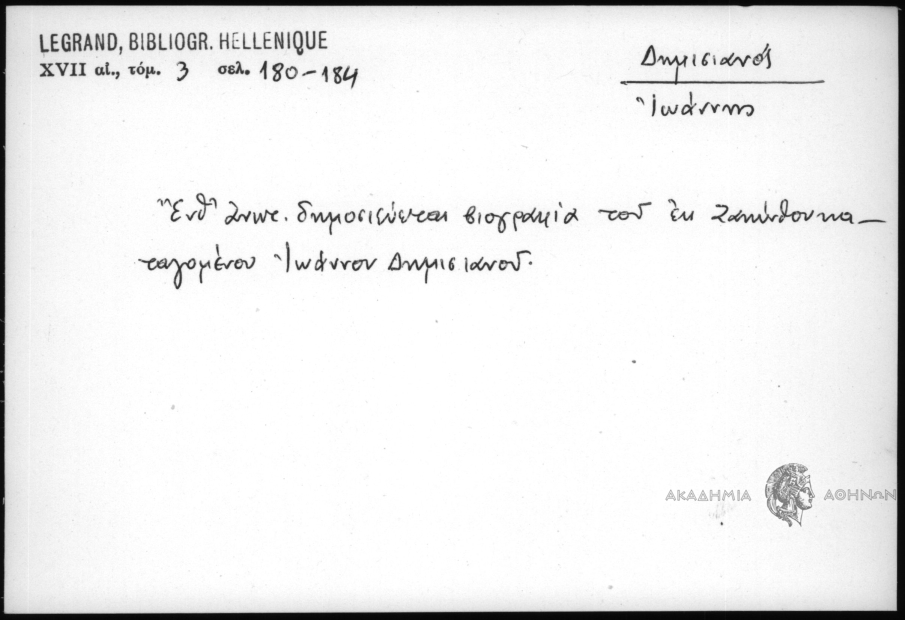 LEGRAND, BIBLIOGR. HELLENIQUE
XVII αἰ., τόμ. 3 σελ. 180-184
Δημισιανός
Ἰωάννης
Ἔνθ' ἀνωτ. δημοσιεύεται βιογραφία τοῦ ἐκ Ζακύνθου κα-
ταγομένου Ἰωάννου Δημισιανοῦ.
ΑΚΑΔΗΜΙΑ ΑΘΗΝΩΝ